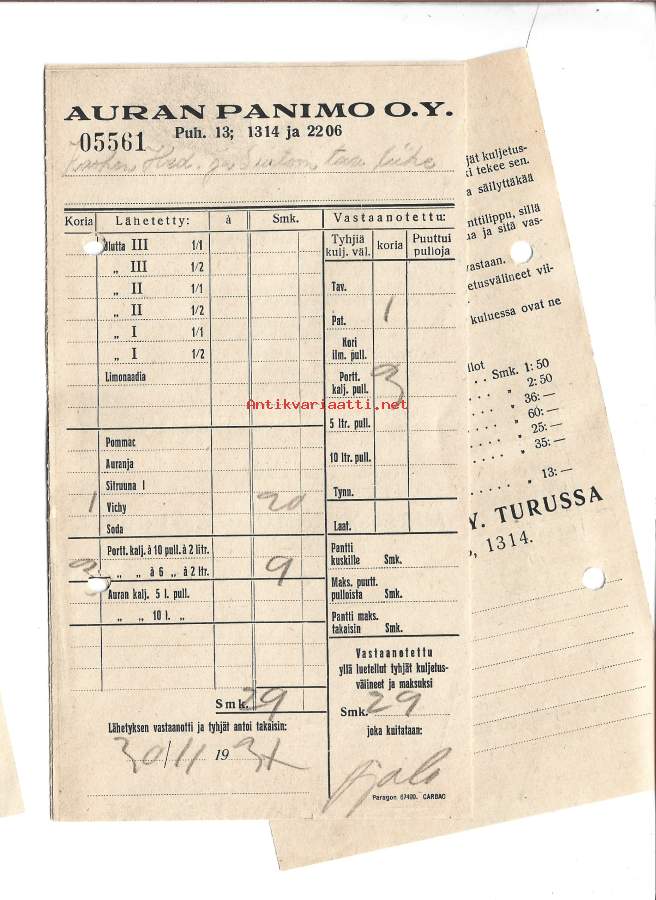 AURAN PANIMO O.Y.
05561 Puh. 13; 1314 ja 2206
ja
Koria Lähetetty: à Smk.
Olutta III 1/1
„ III 1/2
„ II 1/1
„ II 1/2
„ I 1/1
„ I 1/2
Limonaadia
Pommac
Auranja
Sitruuna I
1 Vichy 20
Soda
Portt. kalj. à 10 pull. à 2 litr.
„ „ à 6 „ à 2 ltr. 9
Auran kalj. 5 l. pull.
„ „ 10 l. „
Smk. 29
Lähetyksen vastaanotti ja tyhjät antoi takaisin:
30/11 1931
Vastaanotettu:
Tyhjiä kulj. väl. koria Puuttui pulloja
Tav.
Pat. 1
Kori
ilm. pull.
Portt.
kalj. pull. 3
5 ltr. pull.
10 ltr. pull.
Tynn.
Laat.
Pantti
kuskille Smk.
Maks. puutt.
pulloista Smk.
Pantti maks.
takaisin Smk.
Vastaanotettu
yllä luetellut tyhjät kuljetus-
välineet ja maksuksi
Smk. 29
joka kuitataan:
Paragon 67400. CARBAC
Antikvariaatti.net
jät kuljetus-
ki tekee sen.
a säilyttäkää
nttilippu, sillä
ua ja sitä vas-
vastaan.
etusvälineet vii-
kuluessa ovat ne
llot
Smk. 1:50
„ 2:50
„ 36:—
„ 60:—
„ 25:—
„ 35:—
„ 13:—
Y. TURUSSA
, 1314.